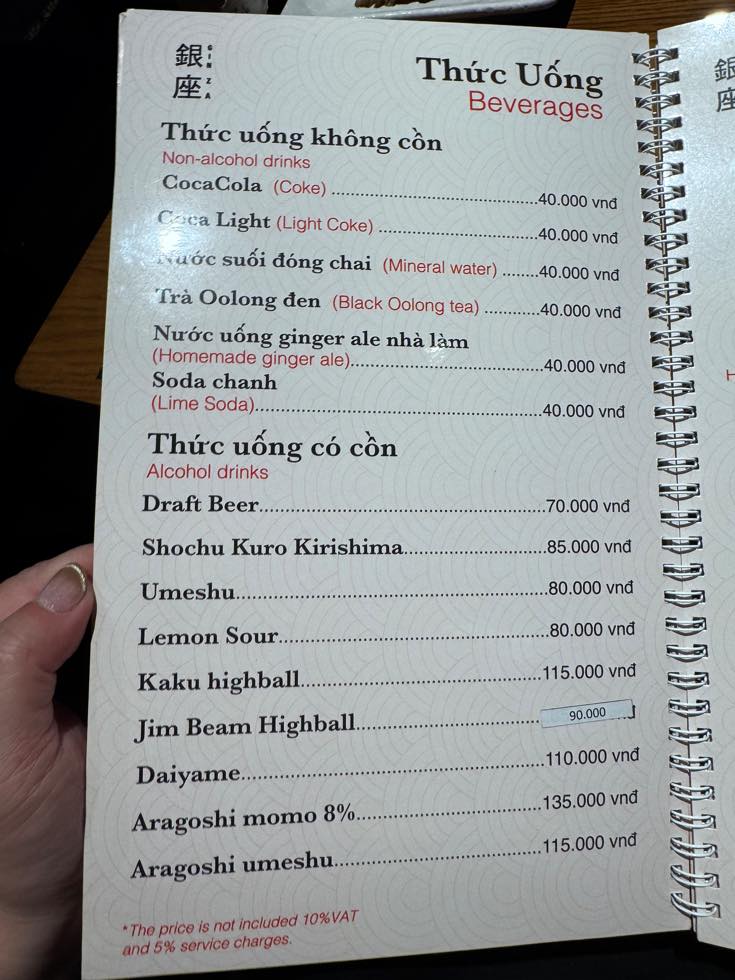 銀座
GINZA
Thức Uống
Beverages
Thức uống không cồn
Non-alcohol drinks
CocaCola (Coke) ........ 40.000 vnđ
Coca Light (Light Coke) ........ 40.000 vnđ
Nước suối đóng chai (Mineral water) ........ 40.000 vnđ
Trà Oolong đen (Black Oolong tea) ........ 40.000 vnđ
Nước uống ginger ale nhà làm
(Homemade ginger ale)........ 40.000 vnđ
Soda chanh
(Lime Soda)........ 40.000 vnđ
Thức uống có cồn
Alcohol drinks
Draft Beer........ 70.000 vnđ
Shochu Kuro Kirishima........ 85.000 vnđ
Umeshu........ 80.000 vnđ
Lemon Sour........ 80.000 vnđ
Kaku highball........ 115.000 vnđ
Jim Beam Highball........ 90.000
Daiyame........ 110.000 vnđ
Aragoshi momo 8%........ 135.000 vnđ
Aragoshi umeshu........ 115.000 vnđ
*The price is not included 10%VAT
and 5% service charges.
銀座
H